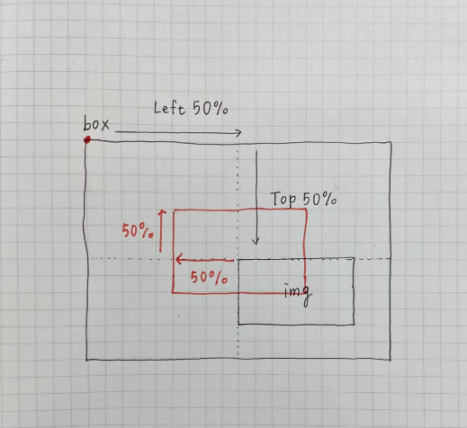 Left 50%
box
Top 50%
50%
50%
img